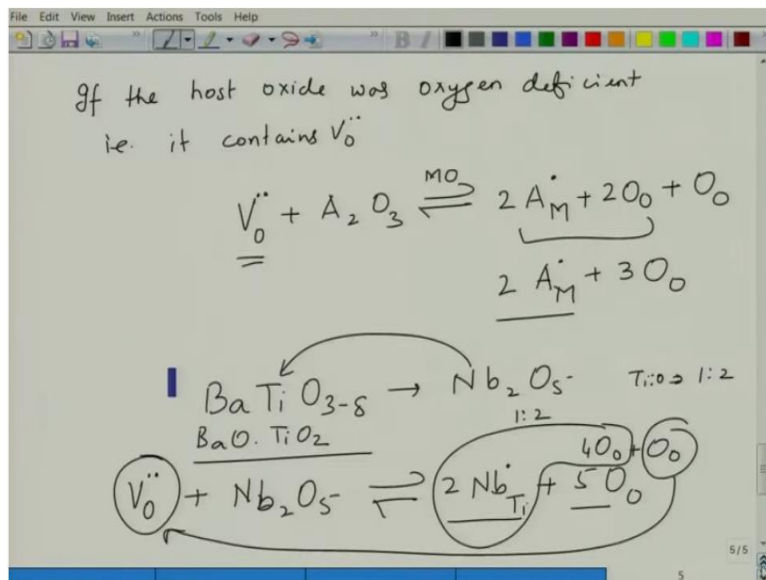 File Edit View Insert Actions Tools Help
B I
If the host oxide was oxygen deficient
i.e. it contains V_O^{••}
V_O^{••} + A_2O_3 ⇌ 2A_M^• + 2O_O + O_O
MO
2A_M^• + 3O_O
BaTiO_{3-δ} → Nb_2O_5 Ti:O ⇒ 1:2
BaO.TiO_2 1:2
4O_O + O_O
V_O^{••} + Nb_2O_5 ⇌ 2Nb_{Ti}^• + 5O_O
5/5
5